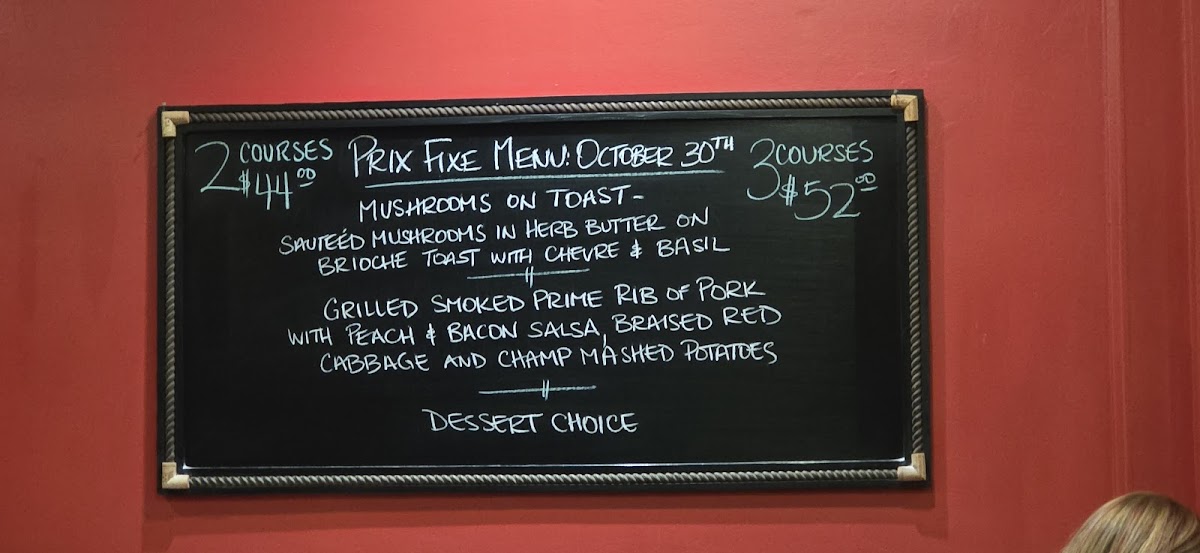 2 COURSES
$44.00
PRIX FIXE MENU: OCTOBER 30TH
3 COURSES
$52.00
MUSHROOMS ON TOAST-
SAUTEÉD MUSHROOMS IN HERB BUTTER ON
BRIOCHE TOAST WITH CHEVRE & BASIL
GRILLED SMOKED PRIME RIB OF PORK
WITH PEACH & BACON SALSA, BRAISED RED
CABBAGE AND CHAMP MASHED POTATOES
DESSERT CHOICE